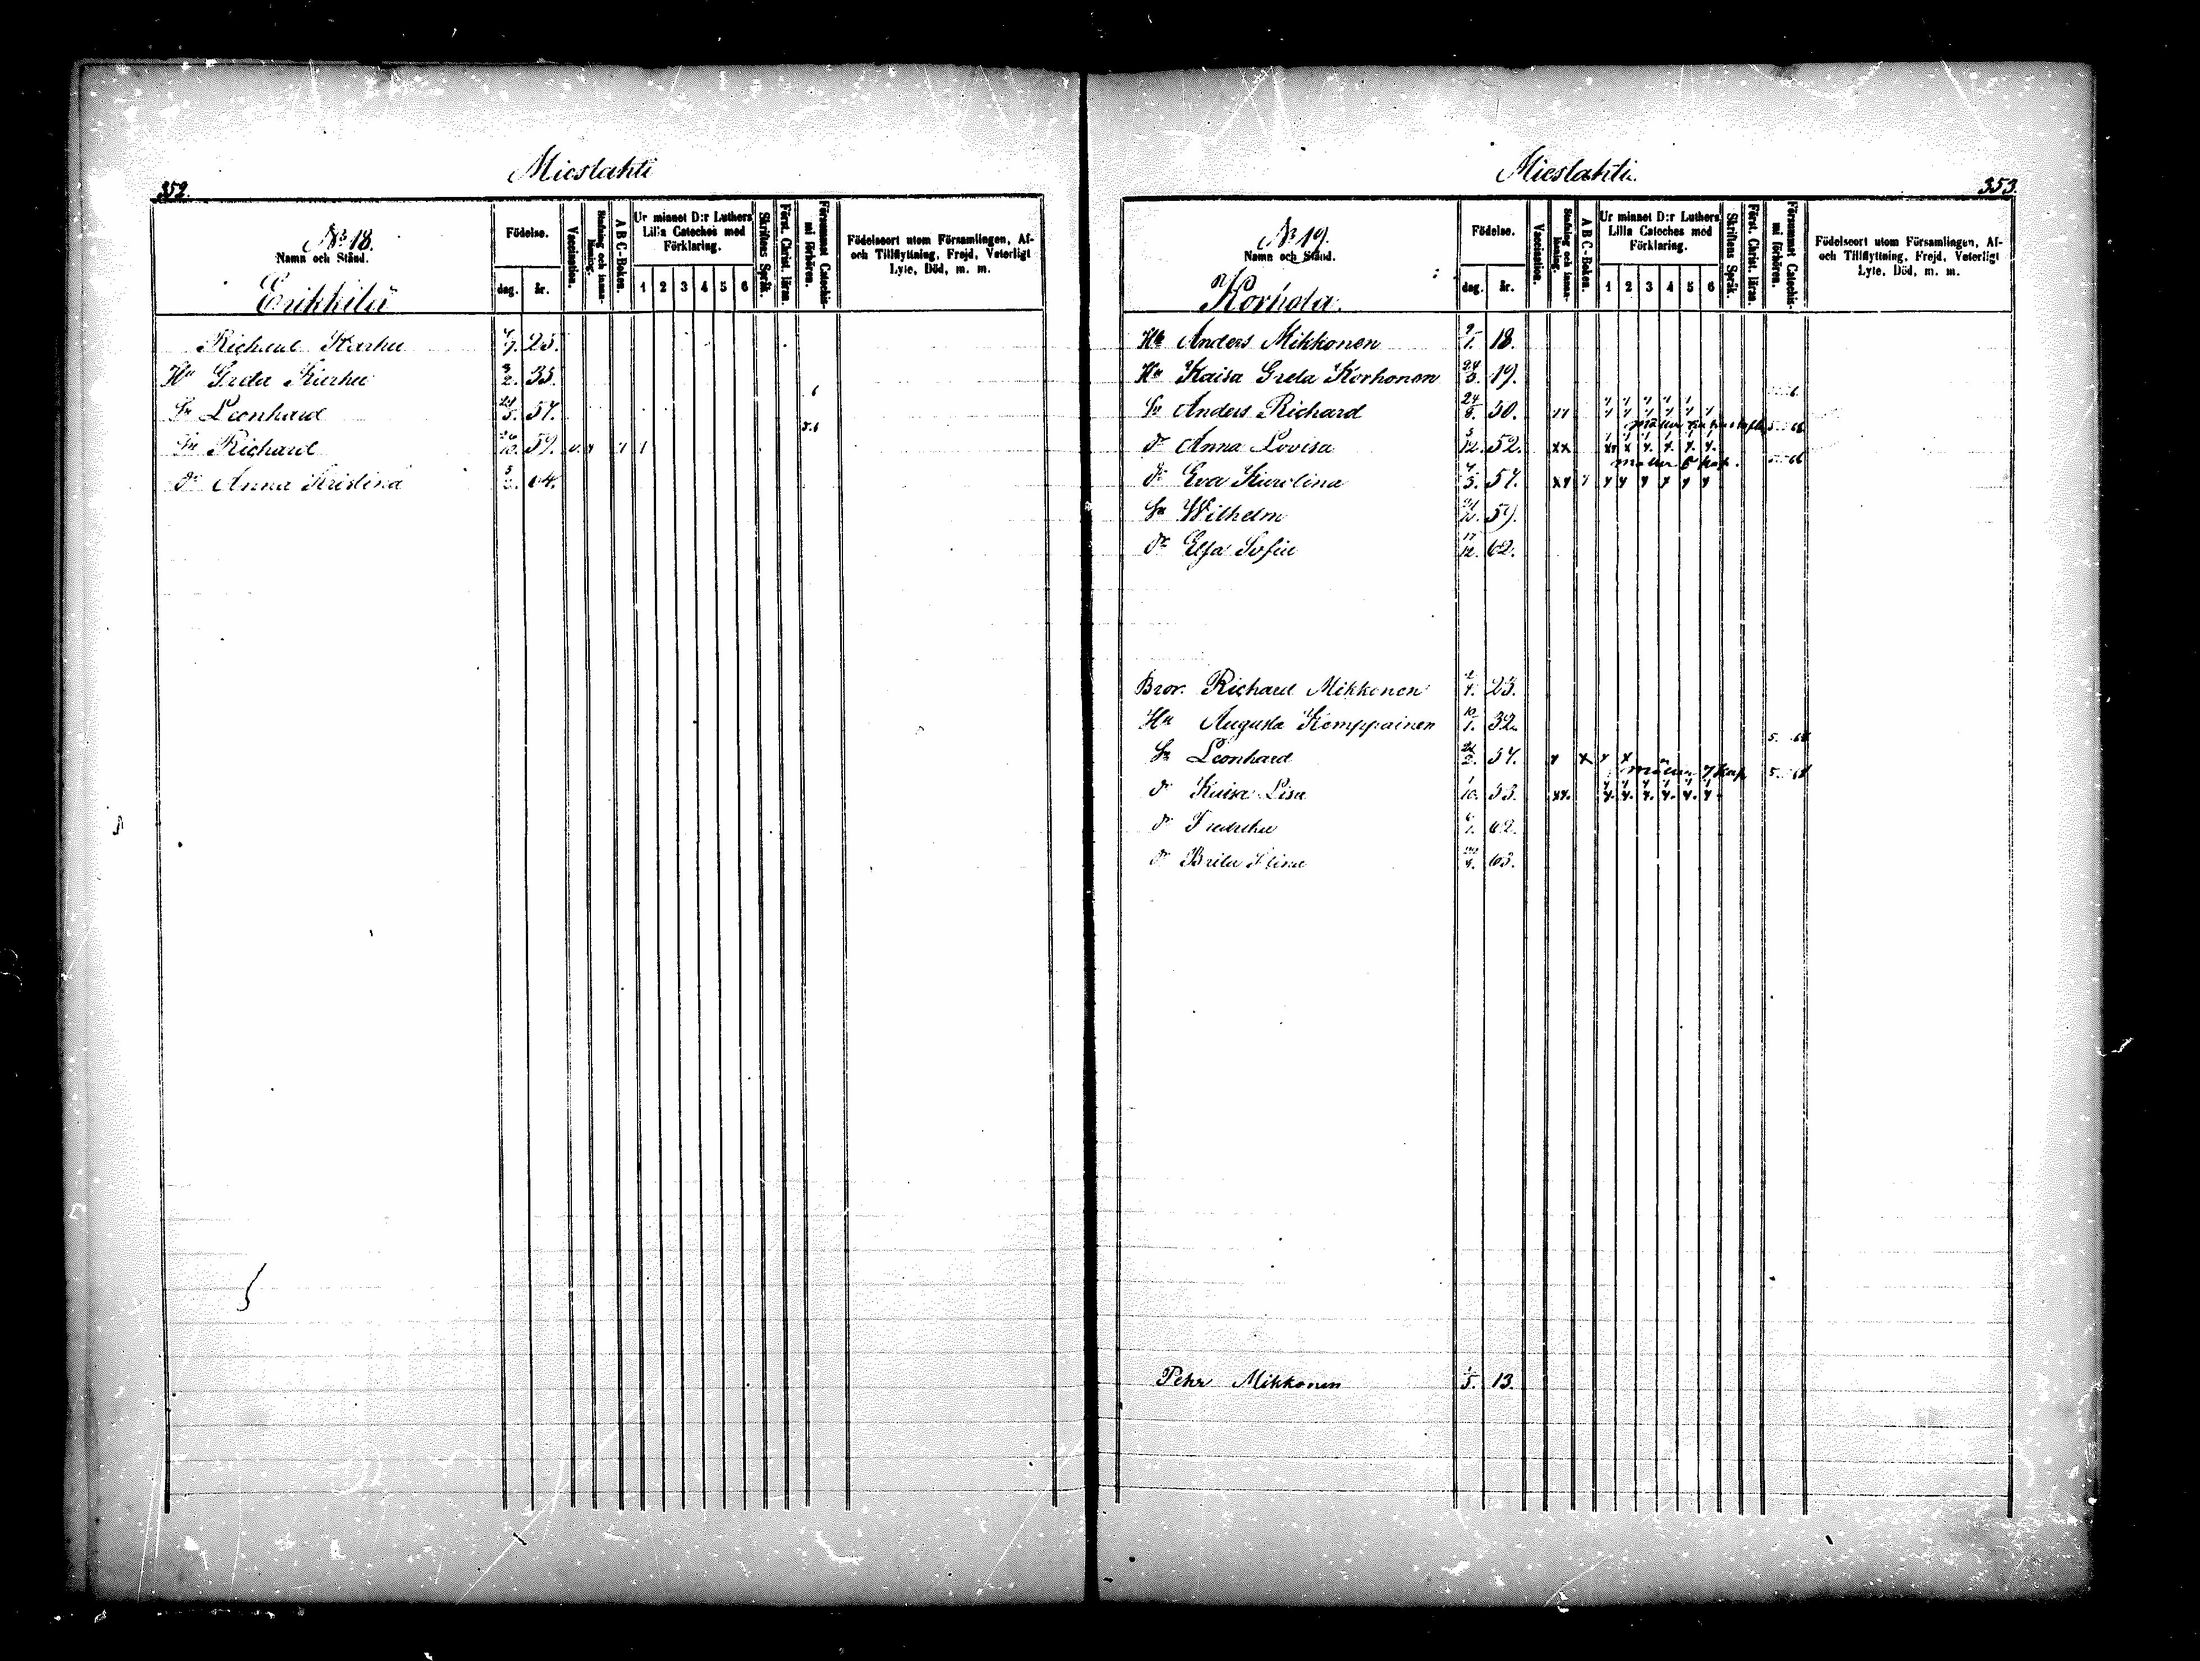 352.
Mieslahti
No 18.
Namn och Stånd.
Födelse.
dag. år.
Vaccination.
Stafning och innanläsning.
A B C-Boken.
Ur minnet D:r Luthers
Lilla Cateches med
Förklaring.
1 2 3 4 5 6
Skriftens Språk.
Först. Christ. läran.
Försummat Catechismi förhören.
Födelseort utom Församlingen, Af-
och Tillflyttning, Frejd, Veterligt
Lyte, Död, m. m.
Erikkilä
Richard Karhu 25.
Hu Greta Karhu 35.
6
Sn Leonhard 57.
5.6
Sn Richard 59.
dr Anna Kristina 64.
Mieslahti.
353.
No 19.
Namn och Stånd.
Födelse.
dag. år.
Vaccination.
Stafning och innanläsning.
A B C-Boken.
Ur minnet D:r Luthers
Lilla Cateches med
Förklaring.
1 2 3 4 5 6
Skriftens Språk.
Först. Christ. läran.
Försummat Catechismi förhören.
Födelseort utom Församlingen, Af-
och Tillflyttning, Frejd, Veterligt
Lyte, Död, m. m.
Korhola.
Hb Anders Mikkonen 9/1. 18.
Hu Kaisa Greta Korhonen 19.
6
Sn Anders Richard 24/8. 50.
dr Anna Lovisa 5/12. 52.
5 kap.
dr Eva Karolina 57.
Sn Wilhelm 59.
dr Elsa Sofia 17/12. 62.
Bror. Richard Mikkonen 23.
Hu Augusta Komppainen 10/1. 32.
Sn Leonhard 54.
7 kap
dr Kaisa Lisa 1/10. 53.
dr Fredrika 6/1. 62.
dr Brita Stina 63.
Pehr Mikkonen 1/5. 13.